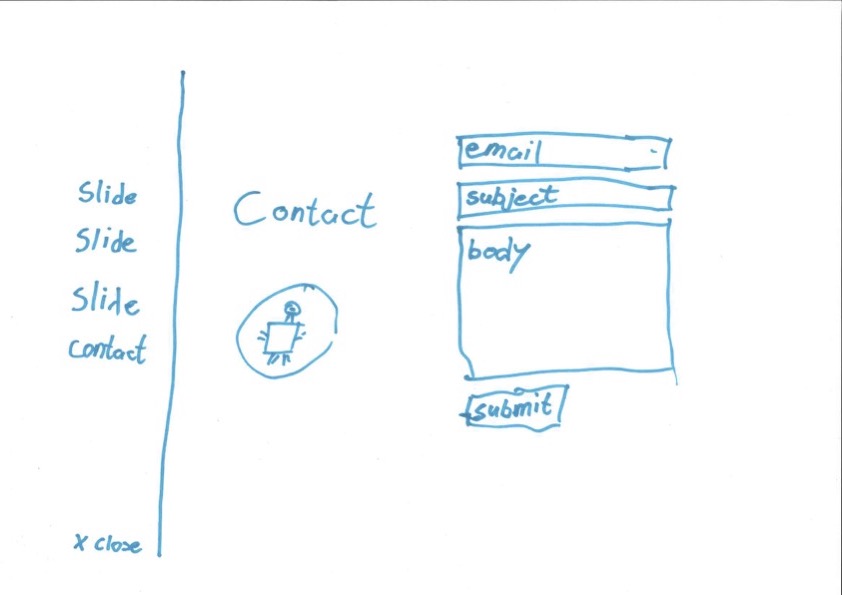 Slide
Slide
Slide
contact
x close
Contact
email
subject
body
submit